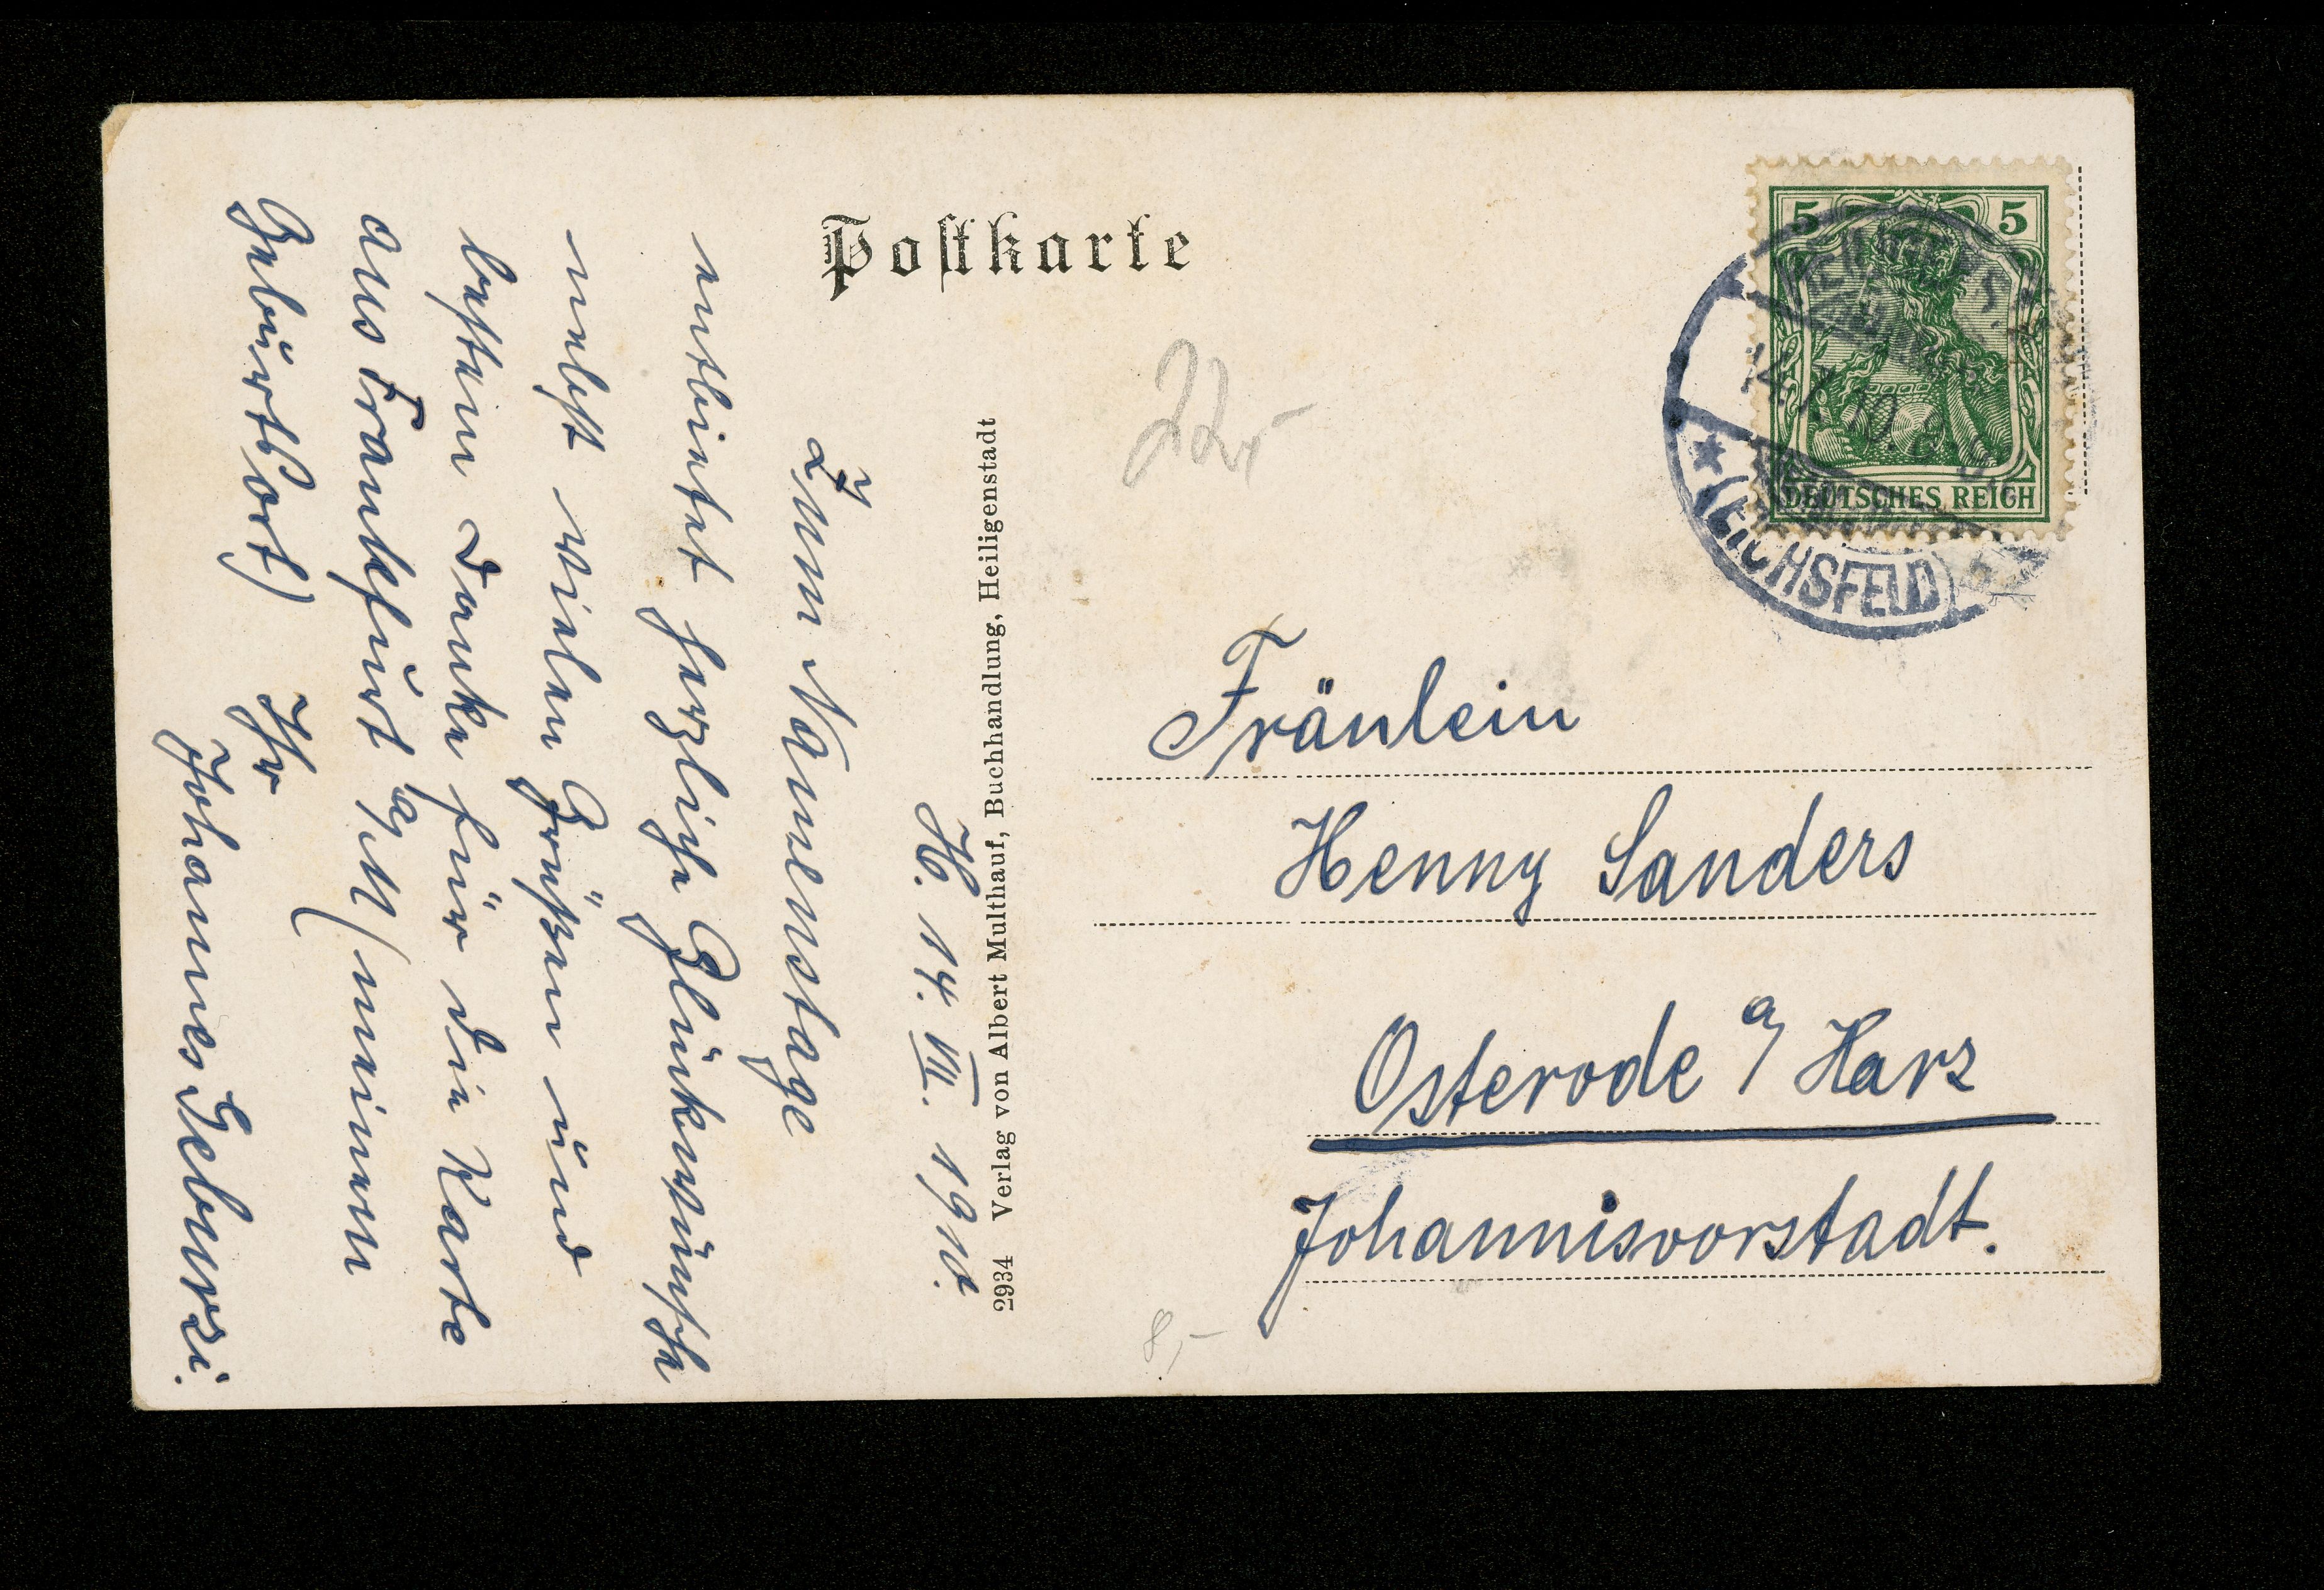 Postkarte
5 5
DEUTSCHES REICH
(EICHSFELD)
22,-
Fräulein
Henny Sanders
Osterode a/ Harz
Johannisvorstadt.
8,-
2934 Verlag von Albert Multhauf, Buchhandlung, Heiligenstadt
H. 14. VII. 1910.
Zum Namenstage
entbietet herzliche Glückwünsche
nebst vielen Grüßen und
bestem Danke für die Karte
aus Frankfurt a/M (meinem
Geburtsort) Ihr
Johannes